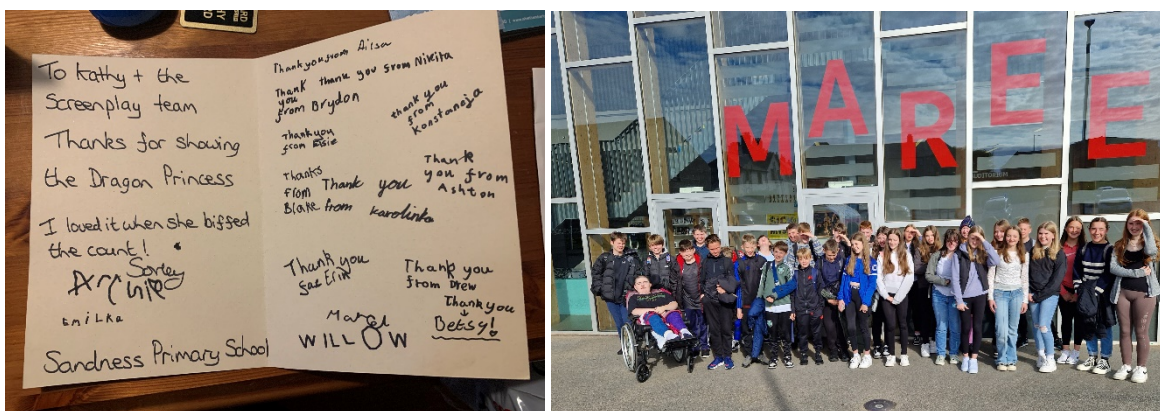 To Kathy + the
Screenplay team
Thanks for showing
the Dragon Princess
I loved it when she biffed
the count!
Archie
Sorley
Emilka
Sandness Primary School
Thank you from Ailsa
Thank you from Brydon
thank you from Nikita
thank you
from
Konstancja
Thank you
from Elsie
Thanks
from
Blake
Thank you
from Karolinka
Thank
you from
Ashton
Thank you
fae Erin
Thank you
from Drew
Thank you
Betsy!
Marcel
WILLOW
MAREE